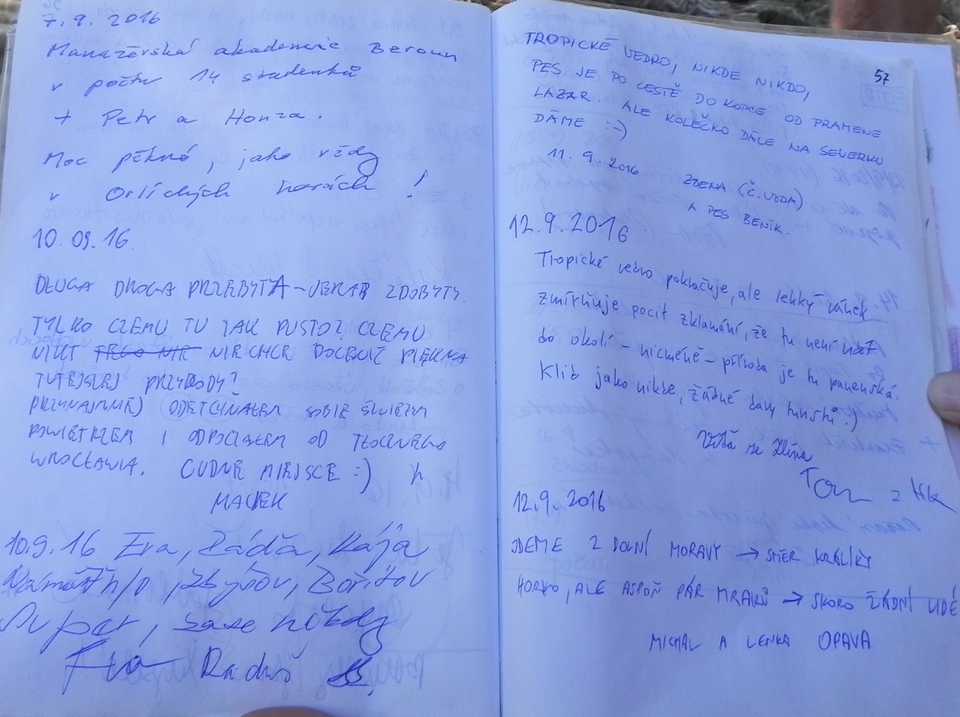 7.9.2016
Manažerská akademie Beroun
v počtu 14 studentů
+ Petr a Honza.
Moc pěkné, jako vždy
v Orlických horách !
10.09.16
DŁUGA DROGA PRZEBYTA -
ZDOBYTY.
TYLKO CZEMU TU TAK PUSTO? CZEMU
NIKT NIE CHCE DOCENIĆ PIĘKNA
TUTEJSZEJ PRZYRODY?
PRZYNAJMNIEJ ODETCHNĄŁEM SOBIE ŚWIEŻYM
POWIETRZEM I ODPOCZĄŁEM OD TŁOCZNEGO
WROCŁAWIA. CUDNE MIEJSCE :)
MACIEK
10.9.16 Eva, Ráďa, Kája
Náměšť n/O, Zbýšov, Bořitov
Super, zase někdy
Eva Raduš
57
TROPICKÉ VEDRO, NIKDE NIKDO,
PES JE PO CESTĚ DO KOPCE OD PRAMENE
LAZAR. ALE KOLEČKO DÁLE NA SEVERKU
DÁME :-)
11.9.2016 ZDENA (Č.VODA)
A PES BENÍK.
12.9.2016
Tropické vedro pokračuje, ale lehký vánek
zmírňuje pocit zklamání, že tu není vidět
do okolí – nicméně – příroda je tu panenská.
Klid jako nikde, žádné davy turistů :)
Tom z HK
12.9.2016
JDEME Z DOLNÍ MORAVY → SMĚR KRÁLÍKY
HORKO, ALE ASPOŇ PÁR MRAKŮ → SKORO ŽÁDNÍ LIDÉ
MICHAL A LENKA OPAVA